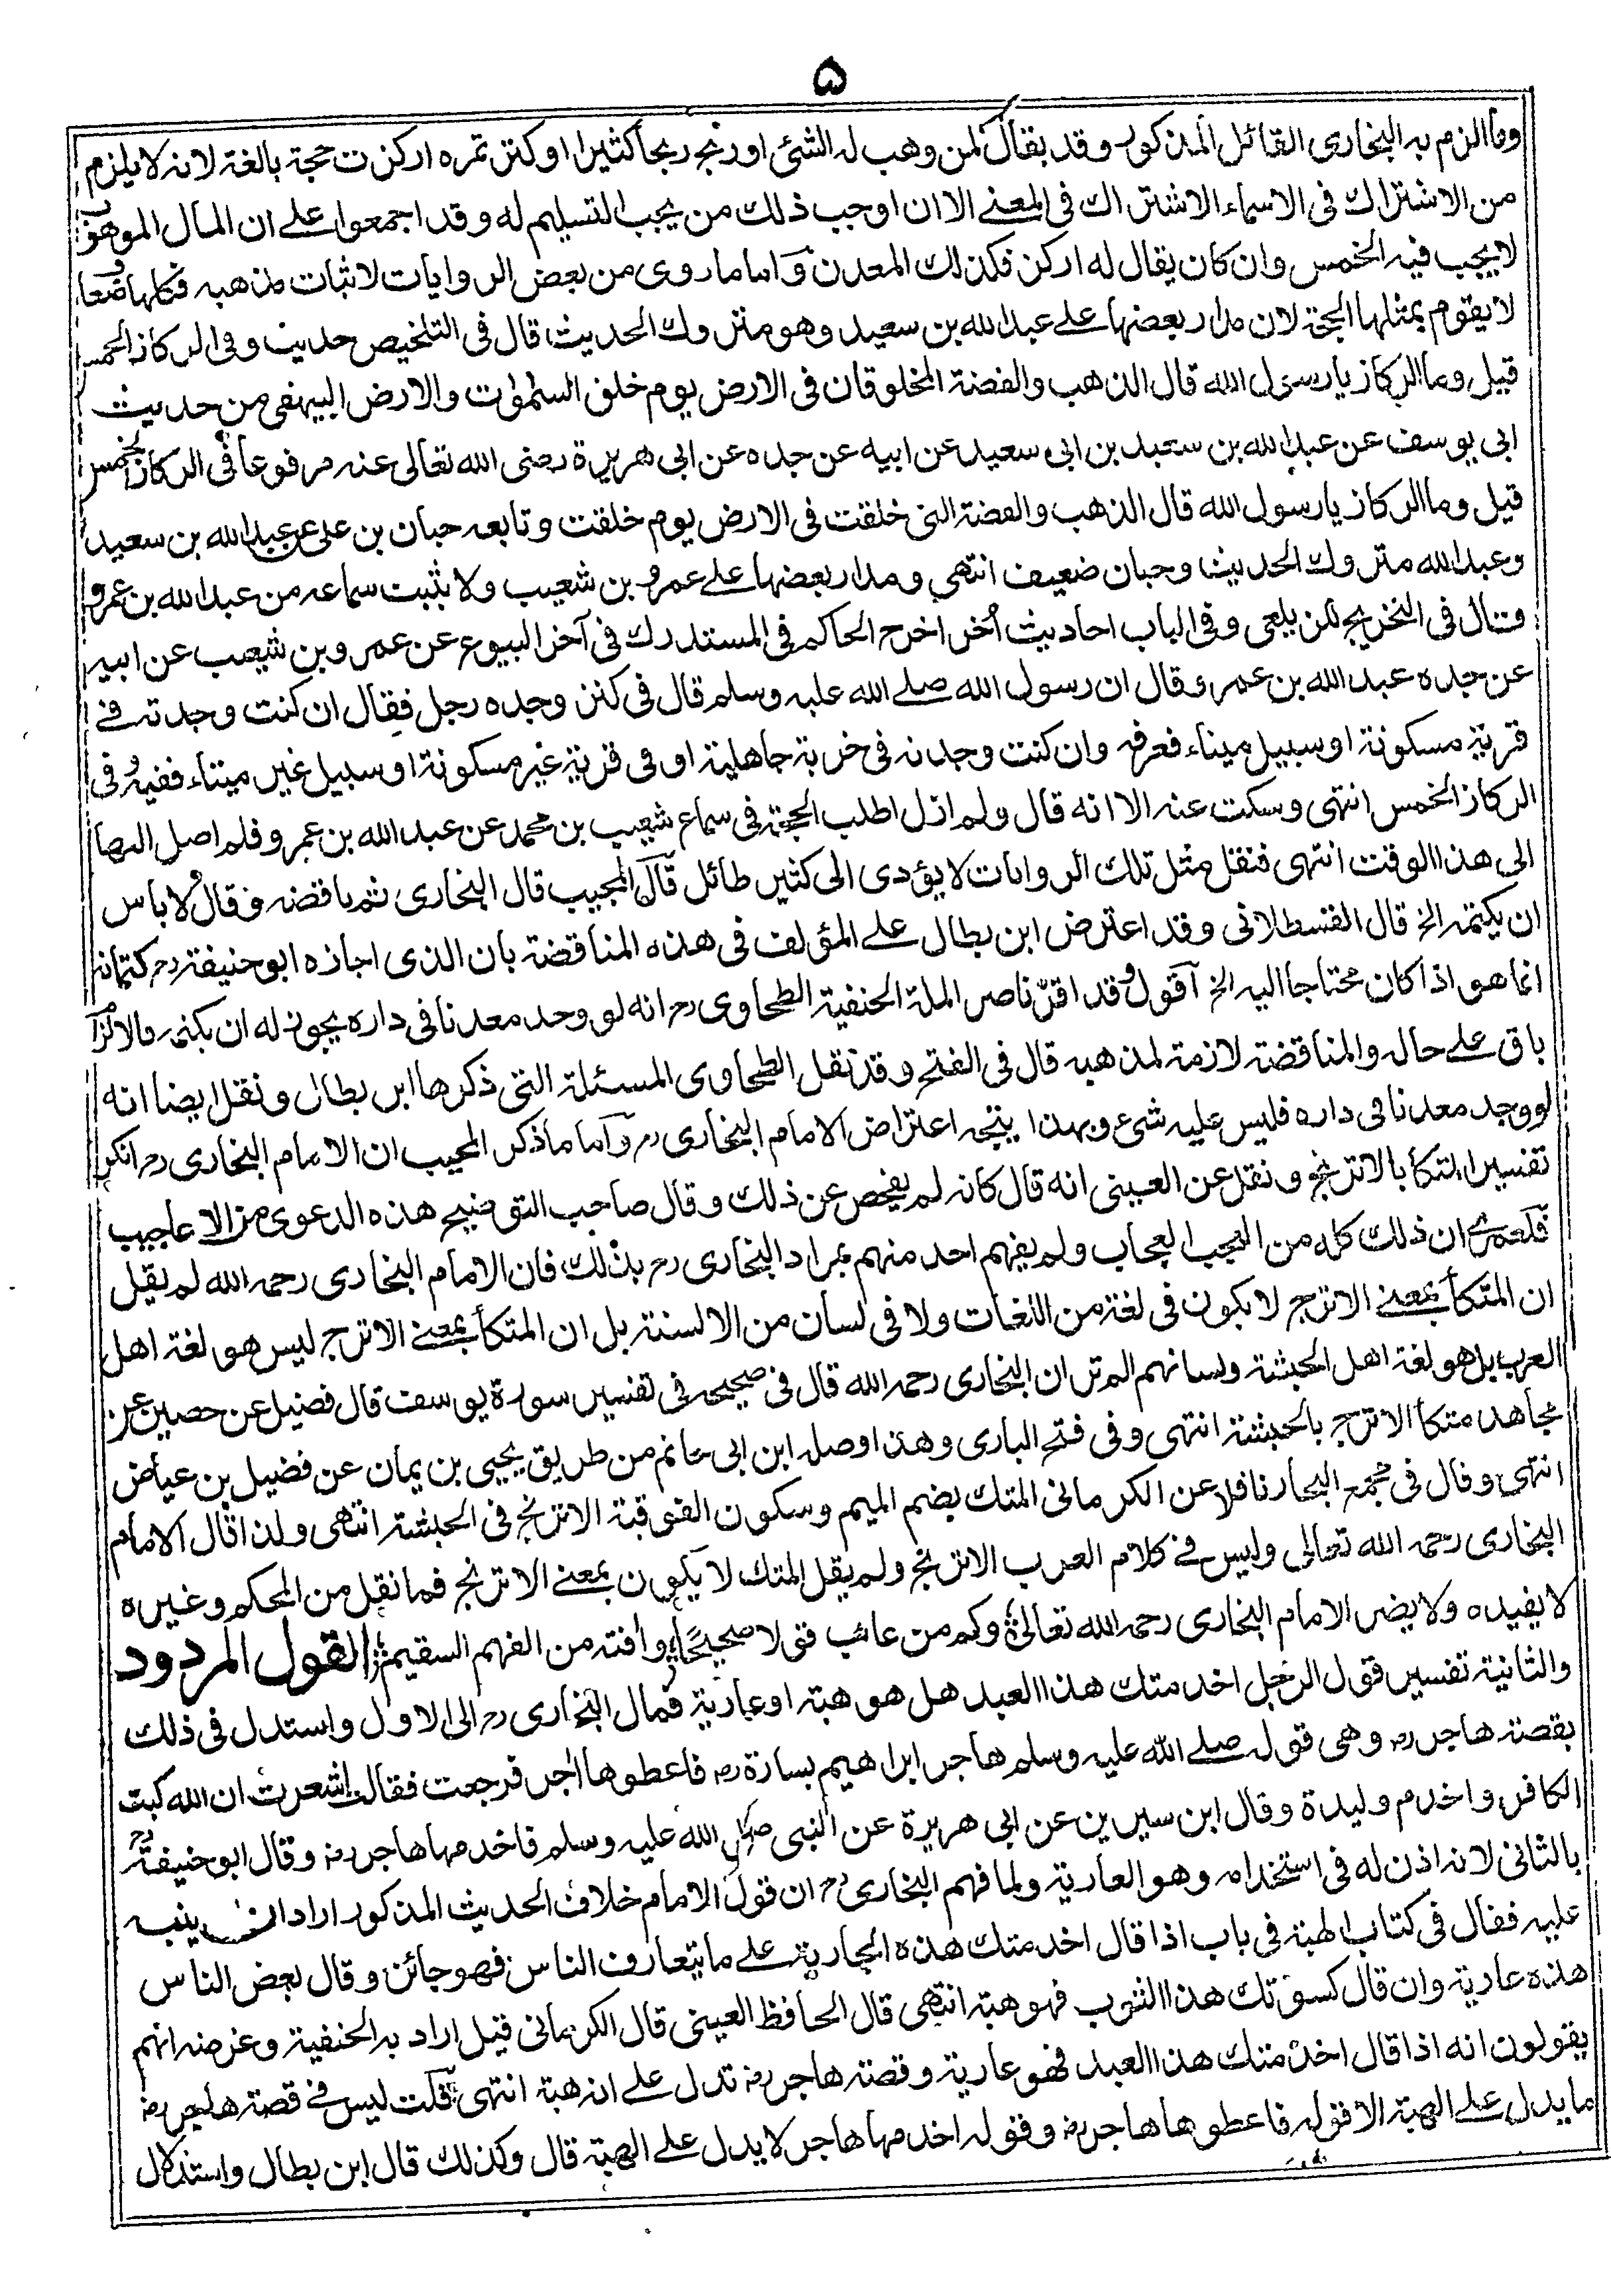 ۵
وما الزم به البخاري القائل المذكور وقد يقال لمن وهب له الشئ او ربح ربحا كثيرا او كثر ثمره اركزت حجة بالغة لانه لا يلزم
من الاشتراك في الاسماء الاشتراك في المعنے الا ان اوجب ذلك من يجب التسليم له وقد اجمعوا علے ان المال الموهوب
لا يجب فيه الخمس وان كان يقال له اركز فكذلك المعدن واما ما روى من بعض الروايات لاثبات مذهبه فكلها ضعاف
لا يقوم بمثلها الحجة لان مدار بعضها علے عبد الله بن سعيد وهو متروك الحديث قال في التلخيص حديث وفي الركاز الخمس
قيل وما الركاز يا رسول الله قال الذهب والفضة المخلوقان في الارض يوم خلق السموات والارض البيهقي من حديث
ابي يوسف عن عبد الله بن سعيد بن ابي سعيد عن ابيه عن جده عن ابي هريرة رضى الله تعالى عنه مرفوعا في الركاز الخمس
قيل وما الركاز يا رسول الله قال الذهب والفضة التي خلقت في الارض يوم خلقت وتابعه حبان بن علي عن عبد الله بن سعيد
وعبد الله متروك الحديث وحبان ضعيف انتهى ومدار بعضها علے عمرو بن شعيب ولا يثبت سماعه من عبد الله بن عمرو
وقال في التخريج للزيلعي وفي الباب احاديث أخر اخرج الحاكم في المستدرك في آخر البيوع عن عمرو بن شعيب عن ابيه
عن جده عبد الله بن عمرو قال ان رسول الله صلے الله عليه وسلم قال في كنز وجده رجل فقال ان كنت وجدته في
قرية مسكونة او سبيل ميتاء فعرفه وان كنت وجدته في خربة جاهلية او في قرية غير مسكونة او سبيل غير ميتاء ففيه وفي
الركاز الخمس انتهى وسكت عنه الا انه قال ولم ازل اطلب الحجة في سماع شعيب بن محمد عن عبد الله بن عمرو فلم اصل اليها
الى هذا الوقت انتهى فنقل مثل تلك الروايات لا يؤدى الى كثير طائل قال المجيب قال البخارى ثم ناقضه وقال لا باس
ان يكتمه الخ قال القسطلاني وقد اعترض ابن بطال علے المؤلف في هذه المناقضة بان الذى اجازه ابو حنيفة رح كتمانه
انما هو اذا كان محتاجا اليه الخ اقول وقد اقر ناصر الملة الحنفية الطحاوى رح انه لو وجد معدنا في داره يجوز له ان يكتمه فالالزام
باق علے حاله والمناقضة لازمة لمذهبه قال في الفتح وقد نقل الطحاوى المسئلة التي ذكرها ابن بطال ونقل ايضا انه
لو وجد معدنا في داره فليس عليه شئ وبهذا يتجه اعتراض الامام البخارى رح واما ما ذكر المجيب ان الامام البخارى رح انكر
تفسير المتكأ بالاترنج ونقل عن العيني انه قال كانه لم يفحص عن ذلك وقال صاحب التوضيح هذه الدعوى من الاعاجيب
فلعمرے ان ذلك كله من العجب العجاب ولم يفهم احد منهم بمراد البخارى رح بذلك فان الامام البخارى رحمه الله لم يقل
ان المتكأ بمعنے الاترج لا يكون في لغة من اللغات ولا في لسان من الالسنة بل ان المتكأ بمعنے الاترج ليس هو لغة اهل
العرب بل هو لغة اهل الحبشة ولسانهم الم تر ان البخارى رحمه الله قال في صحيحه في تفسير سورة يوسف قال فضيل عن حصين عن
مجاهد متكأ الاترج بالحبشة انتهى وفي فتح البارى وهذا وصله ابن ابي حاتم من طريق يحيى بن يمان عن فضيل بن عياض
انتهى وقال في مجمع البحار ناقلا عن الكرماني المتك بضم الميم وسكون الفوقية الاترنج في الحبشة انتهى ولذا قال الامام
البخارى رحمه الله تعالى وليس في كلام العرب الاترنج ولم يقل المتك لا يكون بمعنے الاترنج فما نقل من المحكم وغيره
لا يفيده ولا يضر الامام البخارى رحمه الله تعالى وكم من عائب قولا صحيحًا وآفته من الفهم السقيم القول المردود
والثانية تفسير قول الرجل اخدمتك هذا العبد هل هو هبة او عارية فمال البخارى رح الى الاول واستدل في ذلك
بقصة هاجر رض وهي قوله صلے الله عليه وسلم هاجر ابراهيم بسارة رض فاعطوها اجر فرجعت فقالت اشعرت ان الله كبت
الكافر واخدم وليدة وقال ابن سيرين عن ابي هريرة عن النبي صلى الله عليه وسلم فاخدمها هاجر رض وقال ابو حنيفة رح
بالثاني لانه اذن له في استخدامه وهو العارية ولما فهم البخارى رح ان قول الامام خلاف الحديث المذكور اراد ان ينبه
عليه فقال في كتاب الهبة في باب اذا قال اخدمتك هذه الجارية علے ما يتعارف الناس فهو جائز وقال بعض الناس
هذه عارية وان قال كسوتك هذا الثوب فهو هبة انتهى قال الحافظ العيني قال الكرماني قيل اراد به الحنفية وغرضه انهم
يقولون انه اذا قال اخدمتك هذا العبد فهو عارية وقصة هاجر رض تدل علے انه هبة انتهى قلت ليس في قصة هاجر رض
ما يدل علے الهبة الا قوله فاعطوها هاجر رض وقوله اخدمها هاجر لا يدل علے الهبة قال وكذلك قال ابن بطال واستدلال